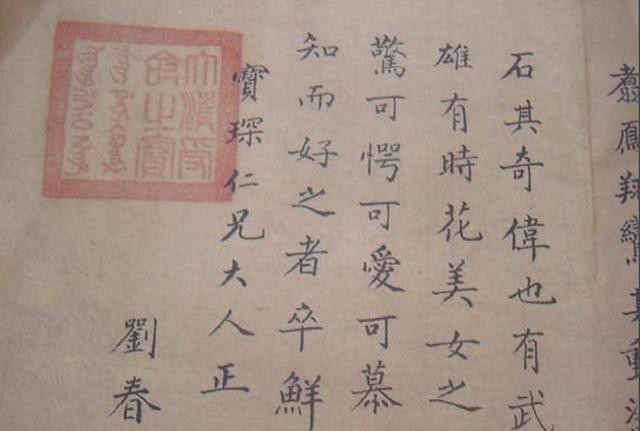 鳳翔鸞其重
石其奇偉也有武
雄有時花美女之
驚可愕可愛可慕
知而好之者卒鮮
寶琛仁兄大人正
劉春
大清受
命之寶